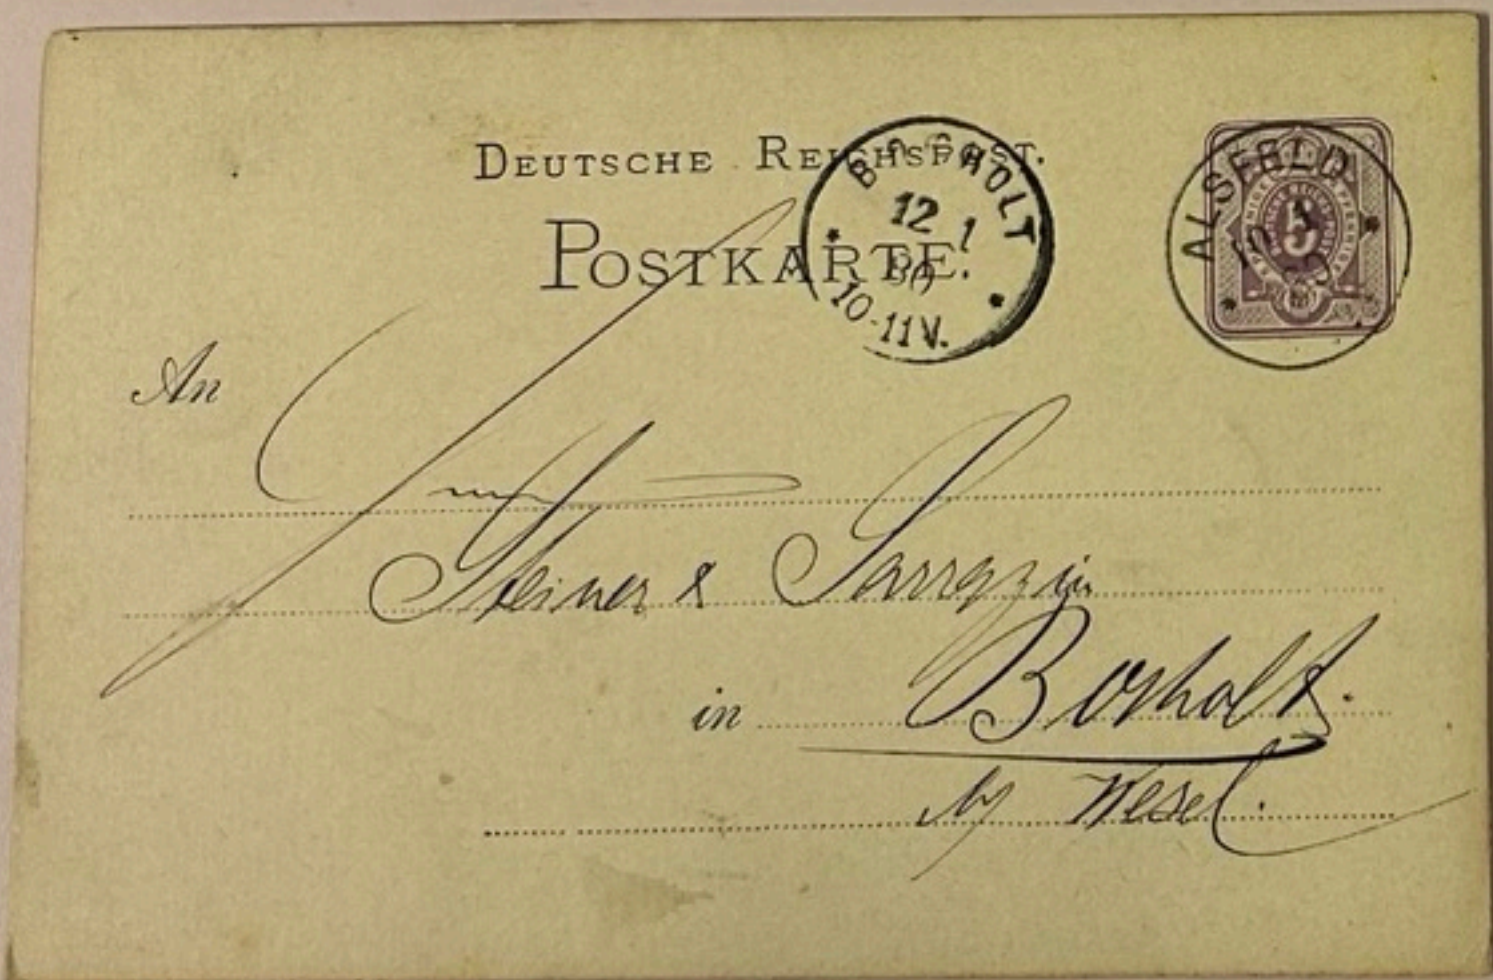 DEUTSCHE REICHSPOST.
POSTKARTE.
BOCHOLT
12 1
10-11 V.
ALSFELD
5
An
Steiner & Sarrazin
in Bocholt.
Wesel.